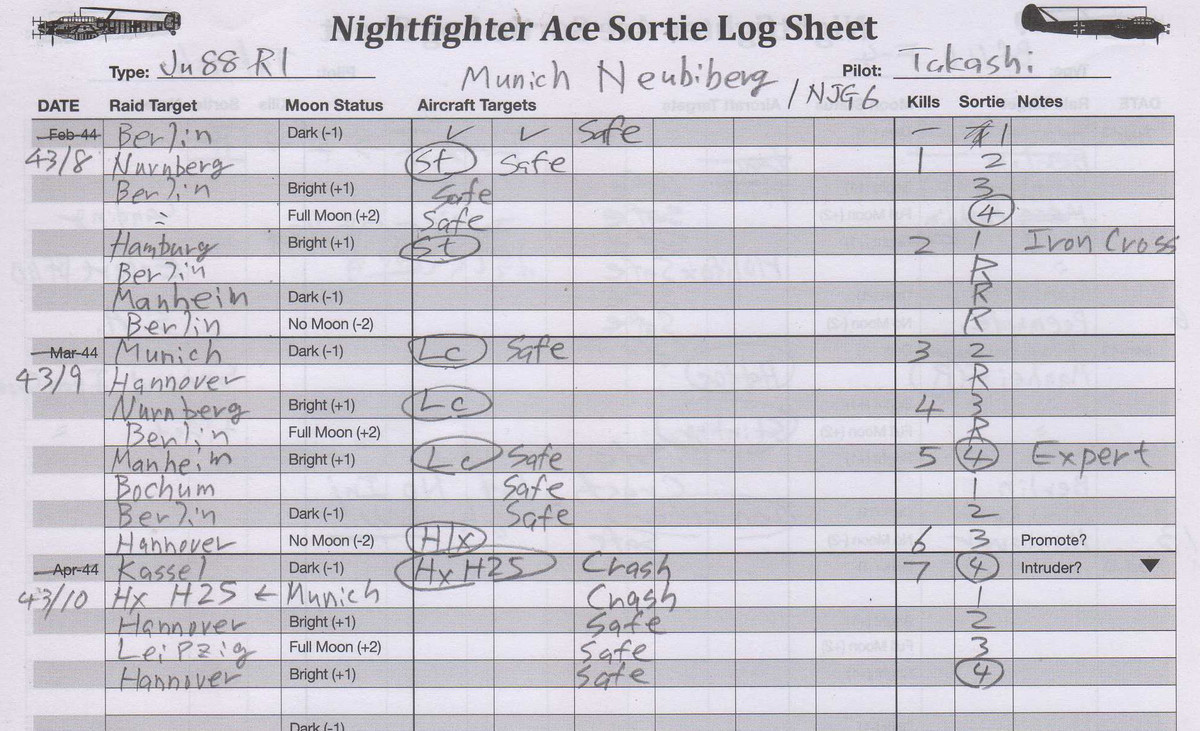 Nightfighter Ace Sortie Log Sheet
Type: Ju88 R1 Munich Neubiberg / NJG6 Pilot: Takashi
DATE Raid Target Moon Status Aircraft Targets Kills Sortie Notes
Feb-44 Berlin Dark (-1) ✓ ✓ Safe – 1
43/8 Nurnberg St Safe 1 2
Berlin Bright (+1) Safe 3
= Full Moon (+2) Safe 4
Hamburg Bright (+1) St 2 1 Iron Cross
Berlin R
Manheim Dark (-1) R
Berlin No Moon (-2) R
Mar-44 Munich Dark (-1) Lc Safe 3 2
43/9 Hannover R
Nurnberg Bright (+1) Lc 4 3
Berlin Full Moon (+2) R
Manheim Bright (+1) Lc Safe 5 4 Expert
Bochum Safe 1
Berlin Dark (-1) Safe 2
Hannover No Moon (-2) Hx 6 3 Promote?
Apr-44 Kassel Dark (-1) Hx H2S Crash 7 4 Intruder? ▼
43/10 Hx H2S ← Munich Crash 1
Hannover Bright (+1) Safe 2
Leipzig Full Moon (+2) Safe 3
Hannover Bright (+1) Safe 4
Dark (-1)